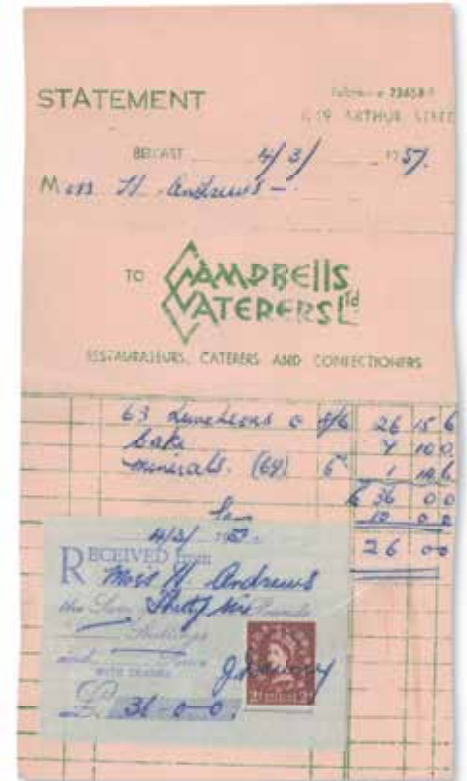 STATEMENT
ARTHUR STREET
BELFAST 4/3/ 1957.
Miss H. Andrews —
TO CAMPBELLS
CATERERS Ltd
RESTAURATEURS, CATERERS AND CONFECTIONERS
63 Luncheons @ 8/6 26 15 6
Cake 7 10 0
Minerals. (69) 6ᵈ 1 14 6
£ 36 0 0
10 0 0
26 0 0
4/3/
RECEIVED from
Miss H. Andrews
the Sum Thirty Six Pounds
Shillings
and Pence
WITH THANKS
£ 36-0-0.